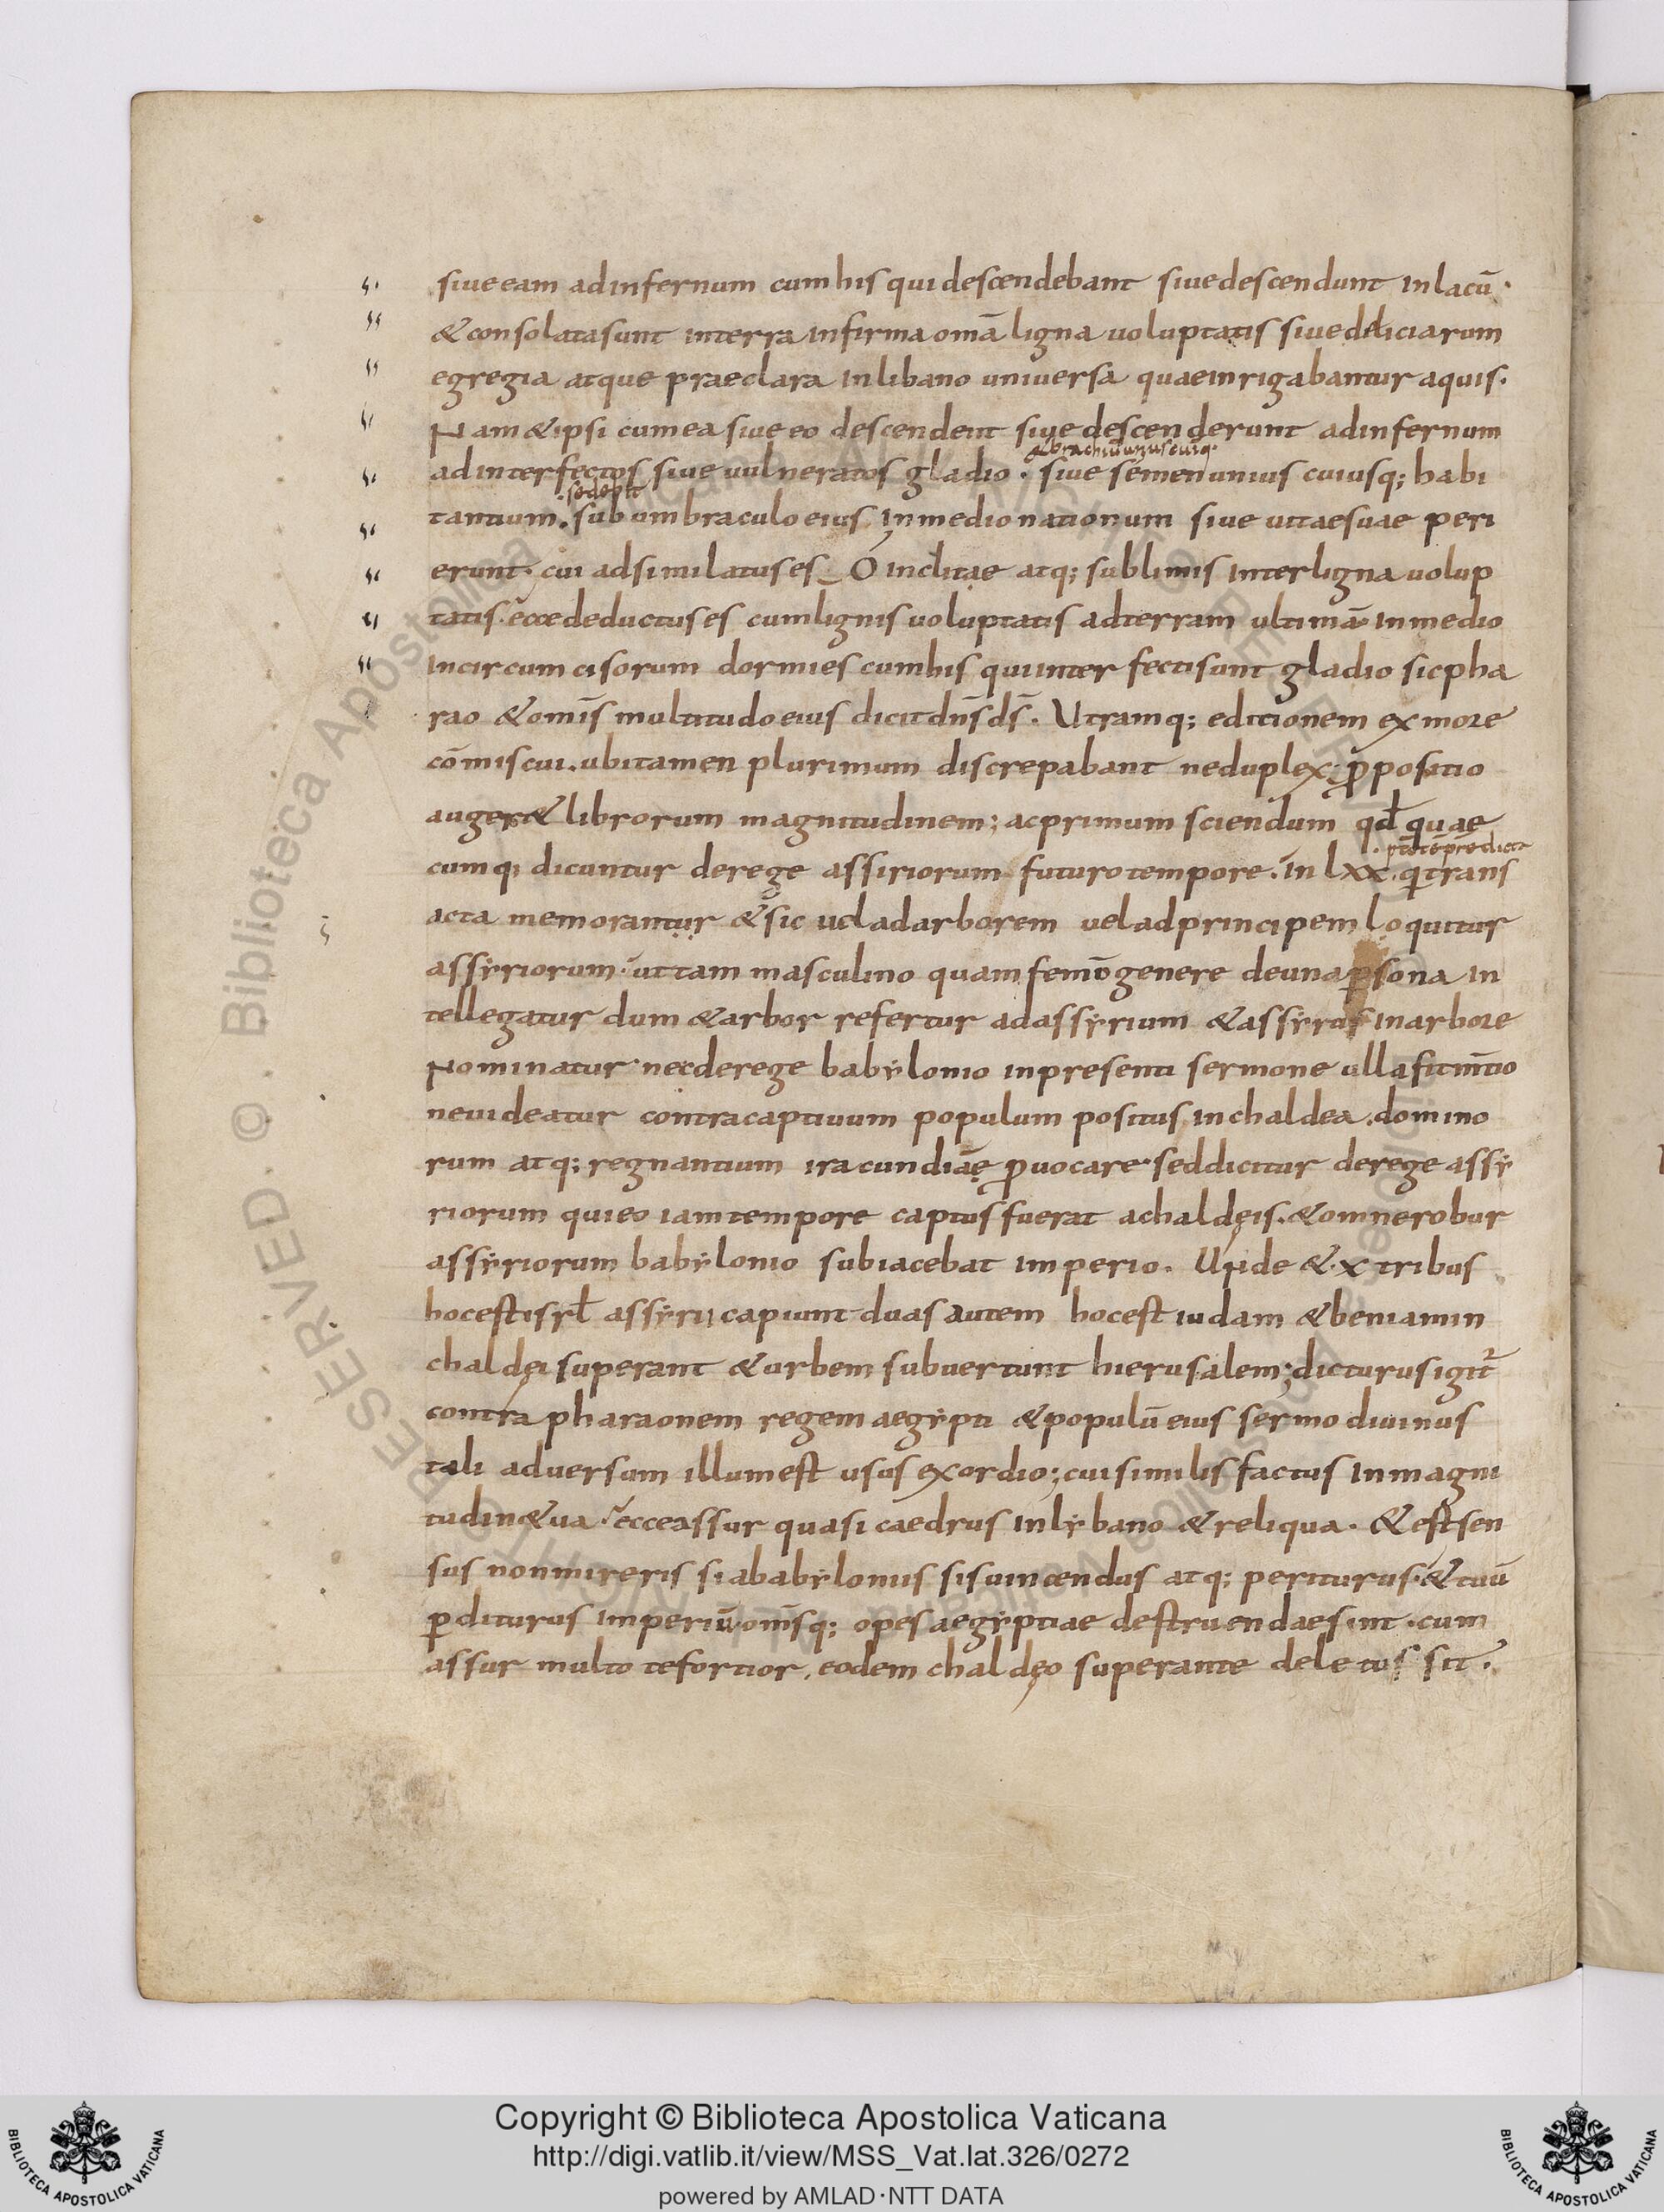 siue eam ad infernum cum his qui descendebant siue descendunt in lacū·
& consolata sunt in terra infirma omīa ligna uoluptatis siue deliciarum
egregia atque praeclara in libano uniuersa quae inrigabantur aquis·
Nam & ipsi cum ea siue eo descendent siue descenderunt ad infernum
& brachiū unius cuiq·
ad interfectos siue uulneratos gladio · siue semen unius cuiusq; habi
·sedebit
tantium· sub umbraculo eius in medio nationum siue uitae suae peri
erunt· cui adsimilatus es O inclitae atq; sublimis inter ligna uolup
tatis· ecce deductus es cum lignis uoluptatis ad terram ultimā in medio
incircumcisorum dormies cum his qui interfecti sunt gladio sic pha
rao & omīs multitudo eius dicit dn̄s ds̄· Utramq; editionem ex more
cōmiscui· ubi tamen plurimum discrepabant ne duplex p̄positio
auger& librorum magnitudinem; ac primum sciendum qd̄ quae
cumq; dicuntur de rege assiriorum futuro tempore· In lxx· q̄ trans
acta memorantur & sic uel ad arborem uel ad principem loquitur
assÿriorum· ut tam masculino quam femīo genere de una ꝑsona in
tellegatur dum & arbor refertur ad assÿrium & assÿrius in arbore
Nominatur· nec de rege babÿlonio in presenti sermone ulla fit m̄tio
ne uideatur contra captiuum populum positus in chaldea· domino
rum atq; regnantium iracundiāę ꝓuocare· sed dicitur de rege assÿ
riorum qui eo iam tempore captus fuerat a chaldęis· & omne robur
assÿriorum babÿlonio subiacebat imperio· Unde &·x tribus
hoc est isrl̄ assÿrii capiunt duas autem hoc est iudam & beniamin
chaldęi superant & urbem subuertunt hierusalem; dicturus igit̄
contra pharaonem regem aegÿpti & populū eius sermo diuinus
tali aduersum illum est usus exordio; cui similis factus in magni
tudin& ua· ecce assur quasi caedrus in lÿbano & reliqua· & est sen
sus non mireris si a babÿloniis sis uincendus atq; periturus· & tuū
ꝑditurus imperiū omīsq; opes aegÿptiae destruendae sint· cum
assur multo te fortior, eodem chaldęo superante deletus sit·
Copyright © Biblioteca Apostolica Vaticana
http://digi.vatlib.it/view/MSS_Vat.lat.326/0272
powered by AMLAD·NTT DATA
BIBLIOTECA APOSTOLICA VATICANA
BIBLIOTECA APOSTOLICA VATICANA